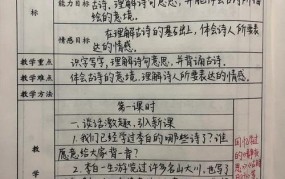 能力目标 古诗,理解诗句意思,并能体会古诗所描
标
绘的意境。
情感目标 在理解古诗的基础上,体会诗人所要表
达的情感。
教学重点 识字写字,理解诗句意思,并背诵古诗。
教学难点 体会古诗的意境,理解诗人所要表达的情感。
教学方法
第一课时
一、谈话激趣,引入新课
1.我们已经学过李白的哪些诗了?谁
愿意给大家背一背?
教 2.李白一生游览过许多名山大川,也写了